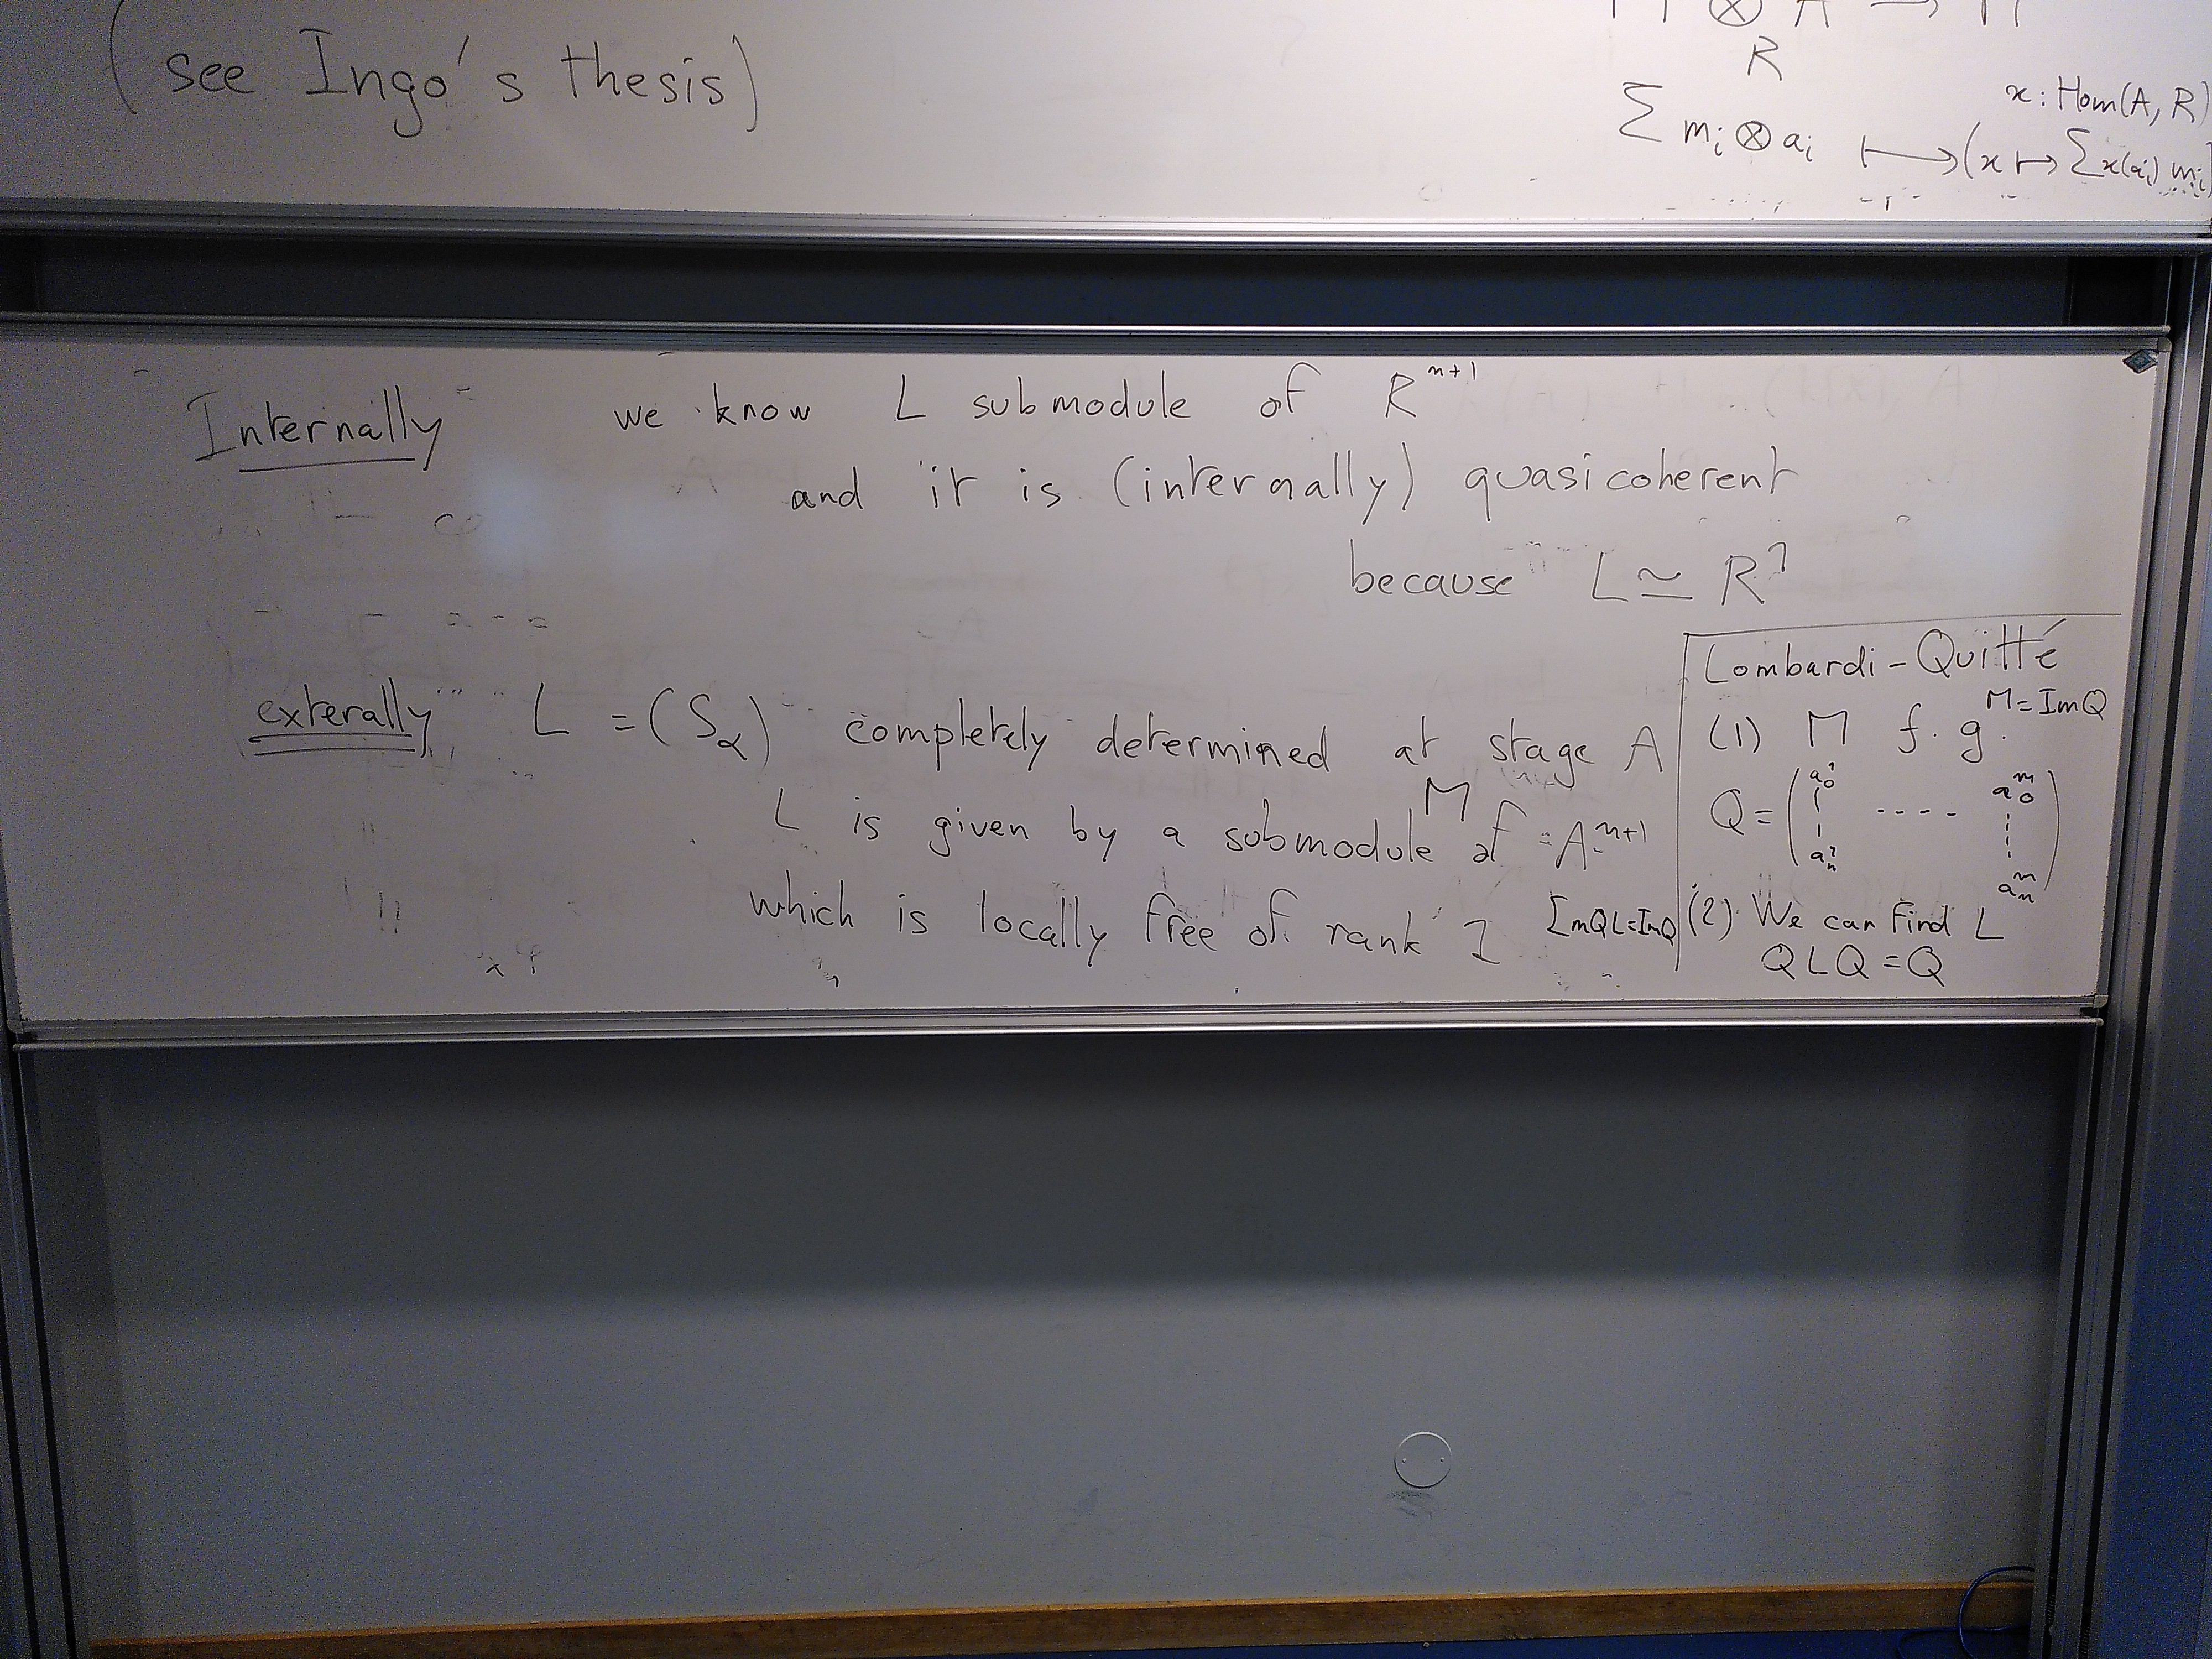 (see Ingo's thesis)
R
x : Hom(A, R)
Σ mᵢ ⊗ aᵢ ⟼ (x ↦ Σ x(aᵢ) mᵢ)
Internally we know L submodule of Rⁿ⁺¹
and it is (internally) quasicoherent
because L ≃ R¹
exterally L = (S_α) completely determined at stage A
L is given by a submodule M of Aⁿ⁺¹
which is locally free of rank 1
Im QL = Im Q
Lombardi - Quitté
(1) M f.g. M = Im Q
Q = ( a₀¹ ---- a₀ᵐ
aₙ¹ aₙᵐ )
(2) We can find L
QLQ = Q